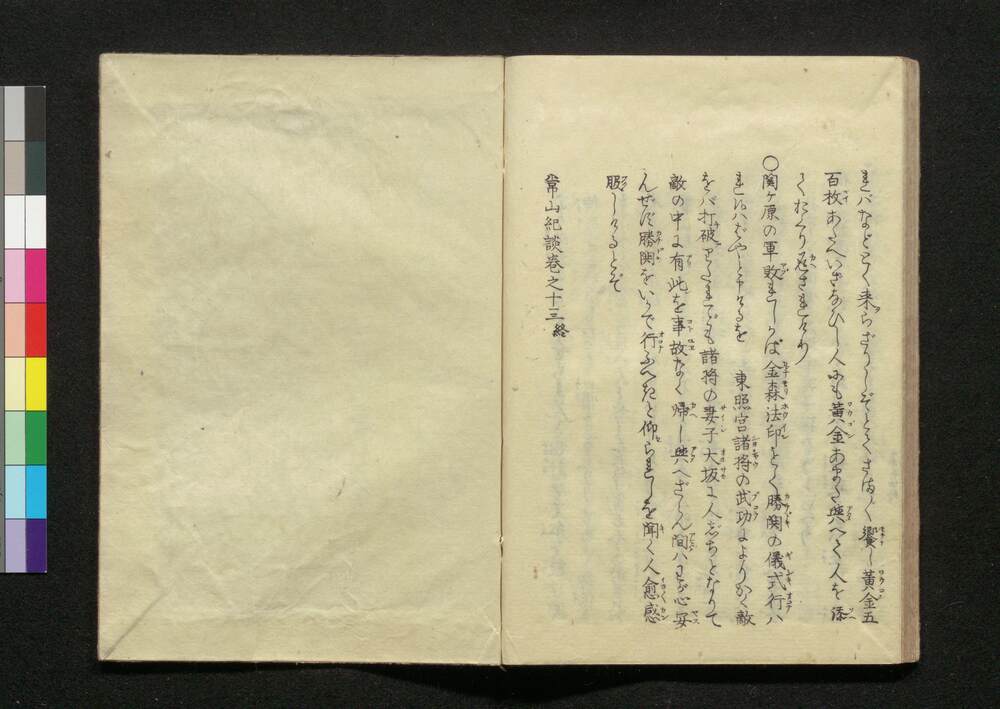 れバなどとく来らざりしぞとてさま〴〵饗し黄金五
百枚あたへいざなひし人にも黄金あまた與へて人を添
ておくり返されけり
○関ヶ原の軍敗れしかば金森法印とく勝関の儀式行ハ
れ候ハヾやと申けるを 東照宮諸将の武功によりかく敵
をバ打破りたれども諸将の妻子大坂に人じちとなりて
敵の中に有此を事故なく帰し與へざらん間ハわが心安
んぜず勝関をいかで行ふべきと仰られしを聞く人愈感
服しけるとぞ
常山紀談巻之十三終